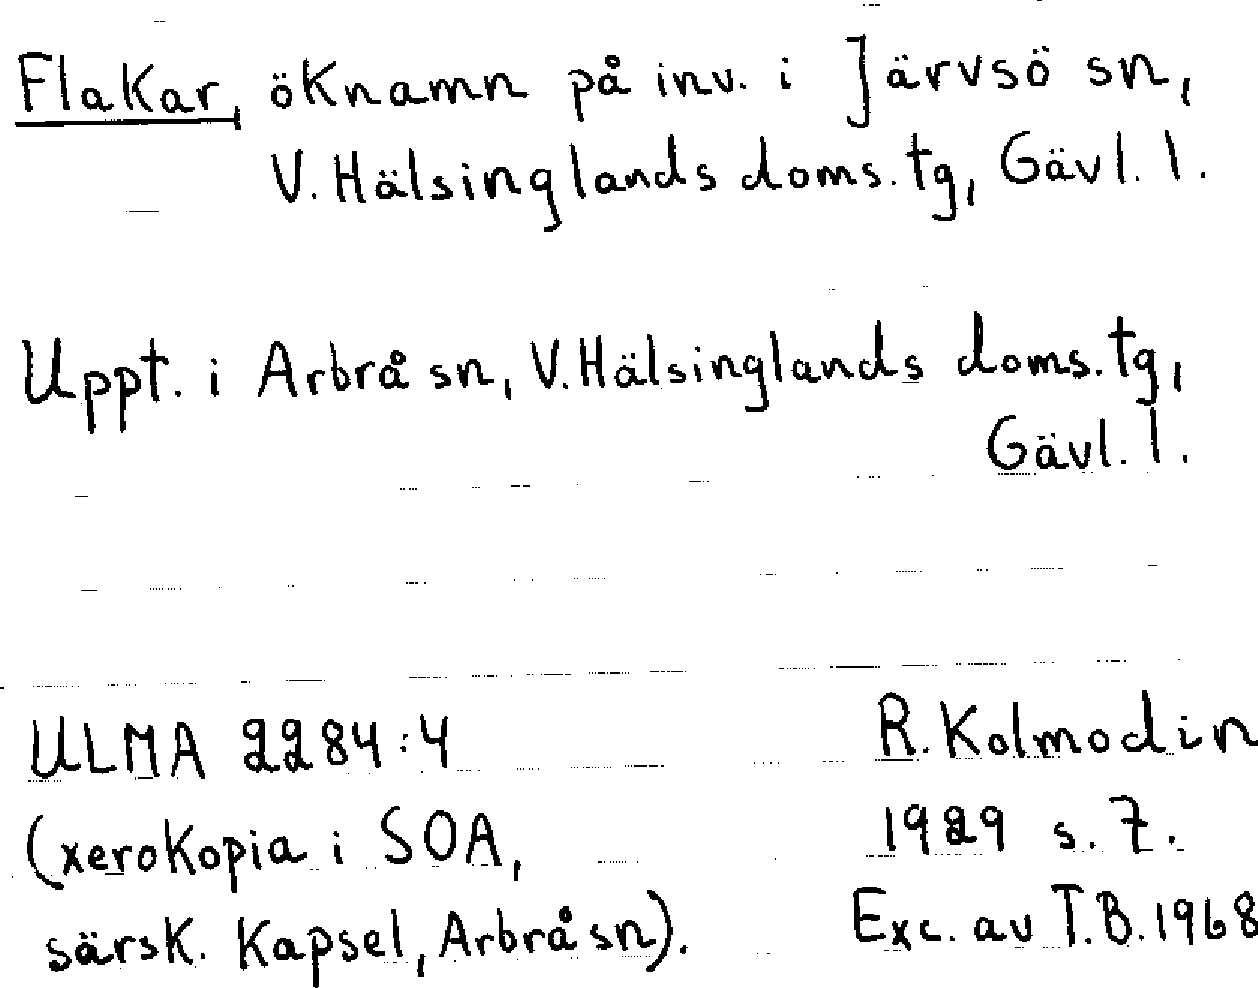 Flakar, öknamn på inv. i Järvsö sn,
V. Hälsinglands doms.tg, Gävl. l.
Uppt. i Arbrå sn, V. Hälsinglands doms.tg,
Gävl. l.
ULMA 2284:4
(xerokopia i SOA,
särsk. kapsel, Arbrå sn).
R. Kolmodin
1929 s. 7.
Exc. av T.B. 1968